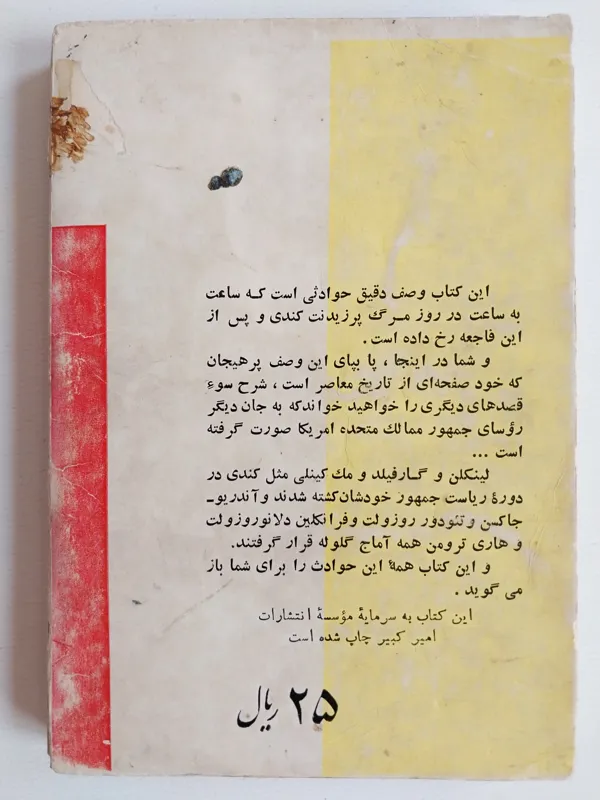 این کتاب وصف دقیق حوادثی است که ساعت
به ساعت در روز مرگ پرزیدنت کندی و پس از
این فاجعه رخ داده است .
و شما در اینجا ، پا بپای این وصف پرهیجان
که خود صفحه‌ای از تاریخ معاصر است ، شرح سوء
قصدهای دیگری را خواهید خواندکه به جان دیگر
رؤسای جمهور ممالك متحده امریکا صورت گرفته
است ...
لینکلن و گارفیلد و مك کینلی مثل کندی در
دورهٔ ریاست جمهور خودشان‌کشته شدند و آندریو-
جاکسن و تئودور روزولت وفرانکلین دلانوروزولت
و هاری ترومن همه آماج گلوله قرار گرفتند.
و این کتاب همهٔ این حوادث را برای شما باز
می گوید .
این کتاب به سرمایهٔ مؤسسهٔ انتشارات
امیر کبیر چاپ شده است
۲۵ ریال